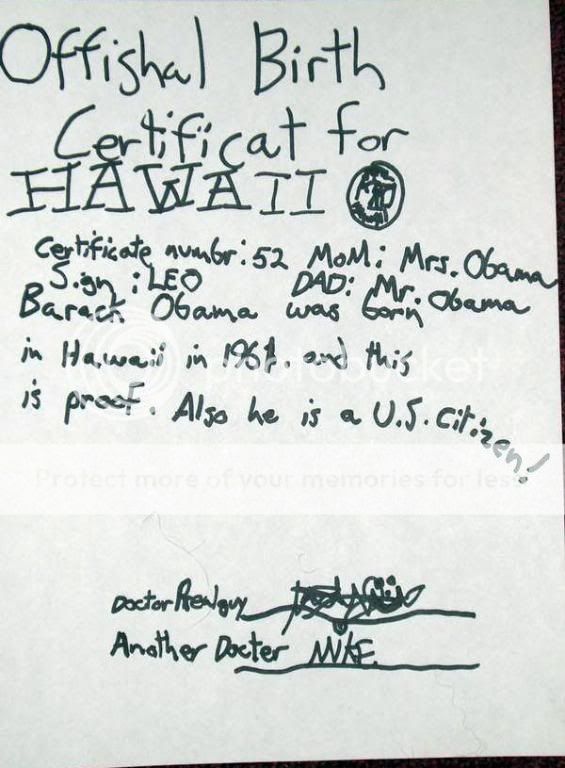 Offishal Birth
Certificat for
HAWAII
Certificate numbr: 52 MoM: Mrs. Obama
Sign: LEO DAD: Mr. Obama
Barack Obama was born
in Hawaii in 1961. and this
is proof. Also he is a U.S. citizen!
photobucket
Protect more of your memories for less
Doctor Realguy
Another Docter MIKE